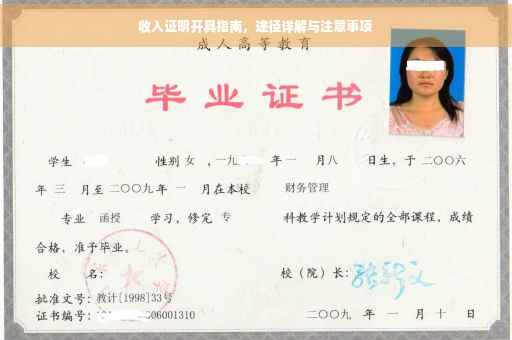 收入证明开具指南，途径详解与注意事项
成人高等教育
毕业证书
学生 性别 女 ，一九 年 一 月 八 日生，于 二〇〇六
年 三 月至 二〇〇九 年 一 月在本校 财务管理
专业 函授 学习，修完 专 科教学计划规定的全部课程，成绩
合格，准予毕业。
校 名： 校（院）长：
批准文号：教计[1998]33号
证书编号： 06001310 二〇〇九 年 一 月 十 日